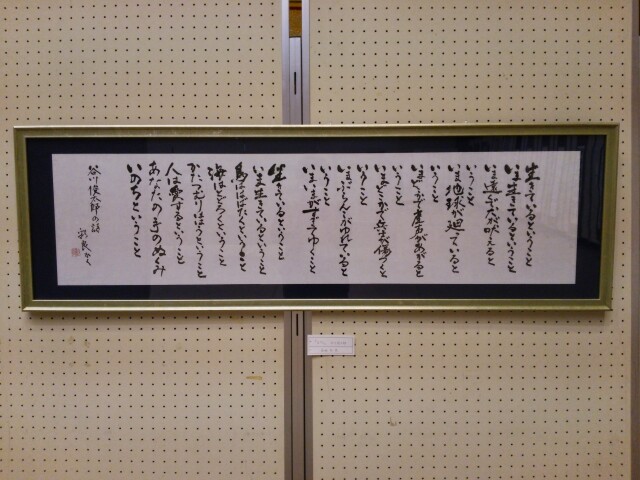 生きているということ
いま生きているということ
いま遠くで犬が吠えると
いうこと
いま地球が廻っていると
いうこと
いまどこかで産声があがると
いうこと
いまどこかで兵士が傷つくと
いうこと
いまぶらんこがゆれていると
いうこと
いまいまがすぎてゆくこと
生きているということ
いま生きているということ
鳥ははばたくということ
海はとどろくということ
かたつむりははうということ
人は愛するということ
あなたの手のぬくみ
いのちということ
谷川俊太郎の詩